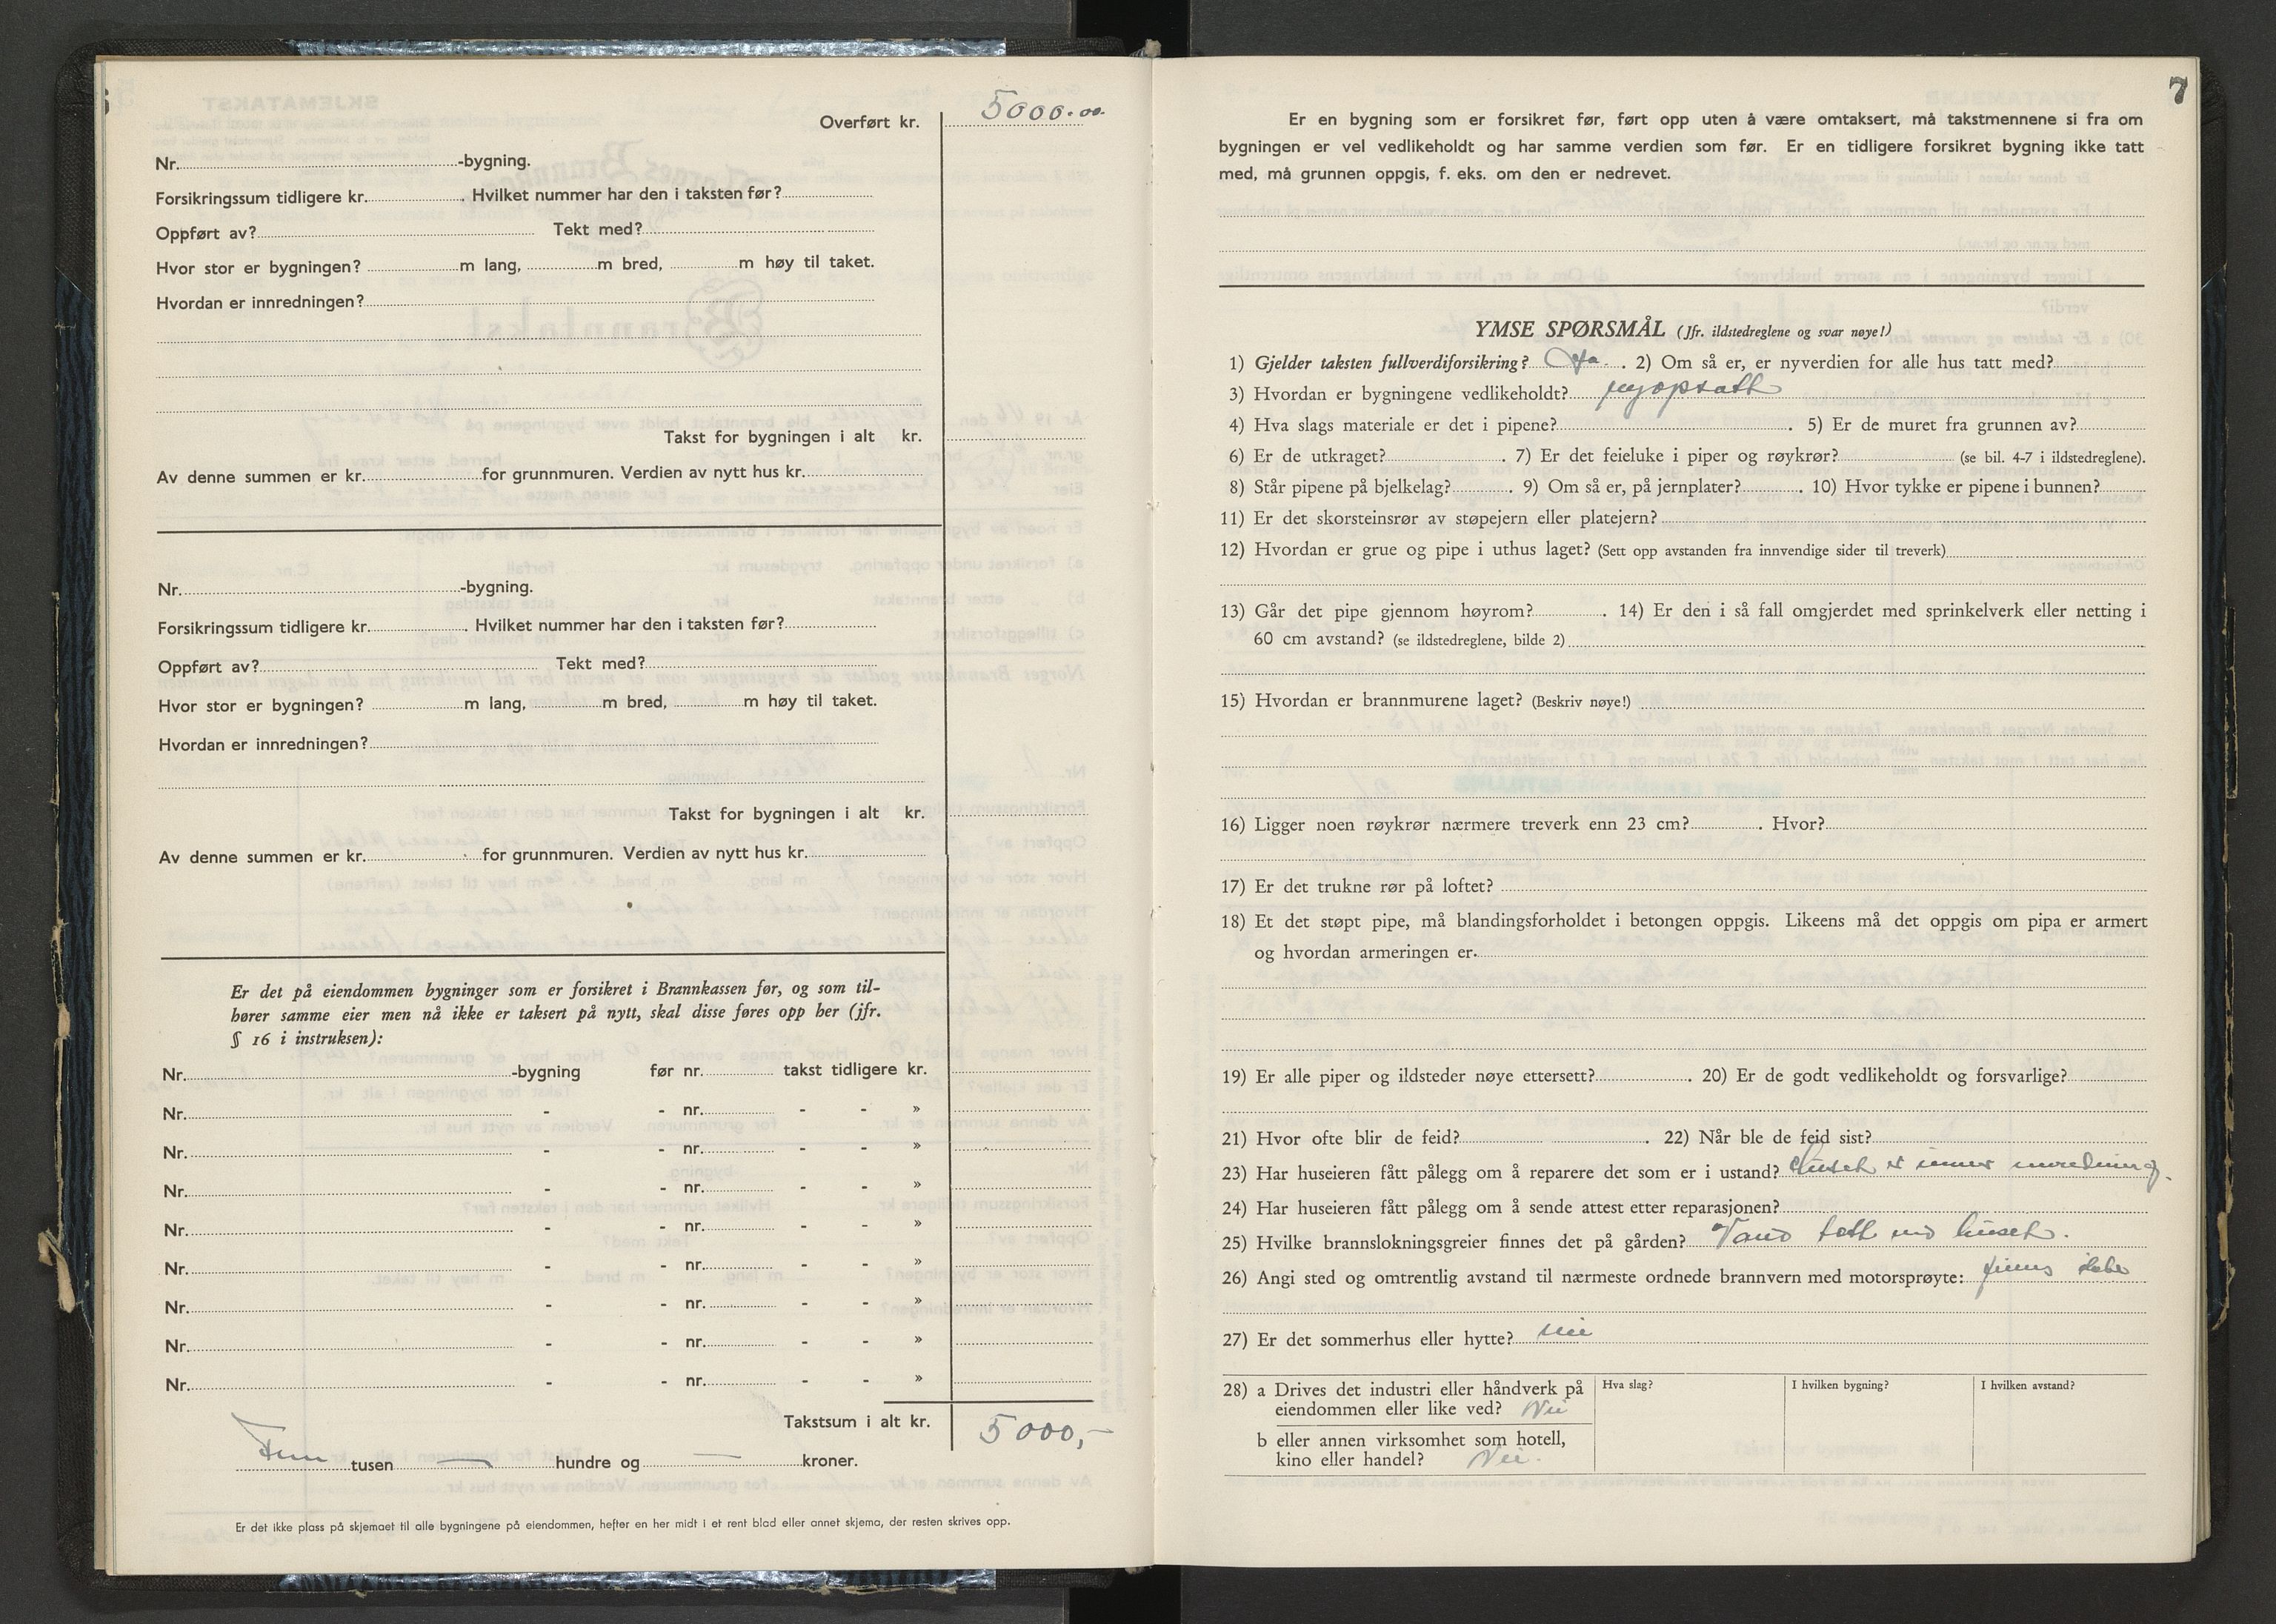 Overført kr. 5000.00
Nr. -bygning.
Forsikringssum tidligere kr. . Hvilket nummer har den i taksten før?
Oppført av? Tekt med?
Hvor stor er bygningen? m lang, m bred, m høy til taket.
Hvordan er innredningen?
Takst for bygningen i alt kr.
Av denne summen er kr. for grunnmuren. Verdien av nytt hus kr.
Nr. -bygning.
Forsikringssum tidligere kr. . Hvilket nummer har den i taksten før?
Oppført av? Tekt med?
Hvor stor er bygningen? m lang, m bred, m høy til taket.
Hvordan er innredningen?
Takst for bygningen i alt kr.
Av denne summen er kr. for grunnmuren. Verdien av nytt hus kr.
Er det på eiendommen bygninger som er forsikret i Brannkassen før, og som til-
hører samme eier men nå ikke er taksert på nytt, skal disse føres opp her (jfr.
§ 16 i instruksen):
Nr. -bygning før nr. takst tidligere kr.
Nr. - - nr. - - »
Nr. - - nr. - - »
Nr. - - nr. - - »
Nr. - - nr. - - »
Nr. - - nr. - - »
Nr. - - nr. - - »
Nr. - - nr. - - »
Nr. - - nr. - - »
Takstsum i alt kr. 5000,-
Fem tusen — hundre og — kroner.
Er det ikke plass på skjemaet til alle bygningene på eiendommen, hefter en her midt i et rent blad eller annet skjema, der resten skrives opp.
7
Er en bygning som er forsikret før, ført opp uten å være omtaksert, må takstmennene si fra om
bygningen er vel vedlikeholdt og har samme verdien som før. Er en tidligere forsikret bygning ikke tatt
med, må grunnen oppgis, f. eks. om den er nedrevet.
YMSE SPØRSMÅL (Jfr. ildstedreglene og svar nøye!)
1) Gjelder taksten fullverdiforsikring? Ja. . 2) Om så er, er nyverdien for alle hus tatt med?
3) Hvordan er bygningene vedlikeholdt? nyopsatt
4) Hva slags materiale er det i pipene? . 5) Er de muret fra grunnen av?
6) Er de utkraget? . 7) Er det feieluke i piper og røykrør? (se bil. 4-7 i ildstedreglene).
8) Står pipene på bjelkelag? . 9) Om så er, på jernplater? . 10) Hvor tykke er pipene i bunnen?
11) Er det skorsteinsrør av støpejern eller platejern?
12) Hvordan er grue og pipe i uthus laget? (Sett opp avstanden fra innvendige sider til treverk)
13) Går det pipe gjennom høyrom? . 14) Er den i så fall omgjerdet med sprinkelverk eller netting i
60 cm avstand? (se ildstedreglene, bilde 2)
15) Hvordan er brannmurene laget? (Beskriv nøye!)
16) Ligger noen røykrør nærmere treverk enn 23 cm? . Hvor?
17) Er det trukne rør på loftet?
18) Et det støpt pipe, må blandingsforholdet i betongen oppgis. Likeens må det oppgis om pipa er armert
og hvordan armeringen er.
19) Er alle piper og ildsteder nøye ettersett? . 20) Er de godt vedlikeholdt og forsvarlige?
21) Hvor ofte blir de feid? . 22) Når ble de feid sist?
23) Har huseieren fått pålegg om å reparere det som er i ustand? Huset er
24) Har huseieren fått pålegg om å sende attest etter reparasjonen?
25) Hvilke brannslokningsgreier finnes det på gården? Vand tett ved huset.
26) Angi sted og omtrentlig avstand til nærmeste ordnede brannvern med motorsprøyte: finns ikke
27) Er det sommerhus eller hytte? nei
28) a Drives det industri eller håndverk på
eiendommen eller like ved? Nei
b eller annen virksomhet som hotell,
kino eller handel? Nei.
Hva slag? I hvilken bygning? I hvilken avstand?